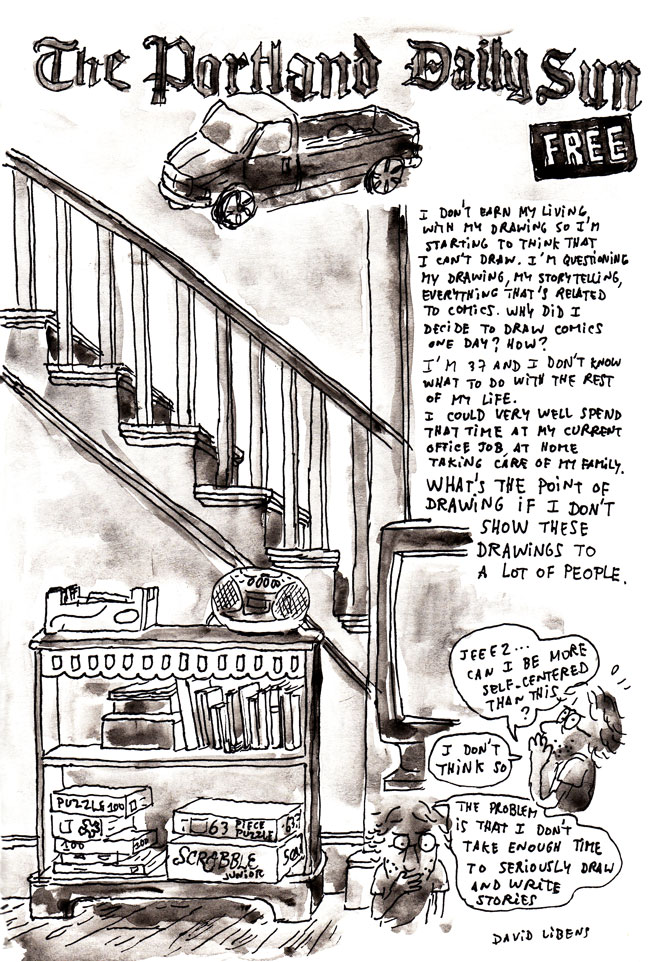 The Portland Daily Sun
FREE
I DON'T EARN MY LIVING
WITH MY DRAWING SO I'M
STARTING TO THINK THAT
I CAN'T DRAW. I'M QUESTIONING
MY DRAWING, MY STORYTELLING,
EVERYTHING THAT'S RELATED
TO COMICS. WHY DID I
DECIDE TO DRAW COMICS
ONE DAY? HOW?
I'M 37 AND I DON'T KNOW
WHAT TO DO WITH THE REST
OF MY LIFE.
I COULD VERY WELL SPEND
THAT TIME AT MY CURRENT
OFFICE JOB, AT HOME
TAKING CARE OF MY FAMILY.
WHAT'S THE POINT OF
DRAWING IF I DON'T
SHOW THESE
DRAWINGS TO
A LOT OF PEOPLE.
JEEEZ...
CAN I BE MORE
SELF-CENTERED
THAN THIS
?
I DON'T
THINK SO
THE PROBLEM
IS THAT I DON'T
TAKE ENOUGH TIME
TO SERIOUSLY DRAW
AND WRITE
STORIES
PUZZLE 100
100
200
63 PIECE
PUZZLE
63
SCRABBLE
JUNIOR
DAVID LIBENS